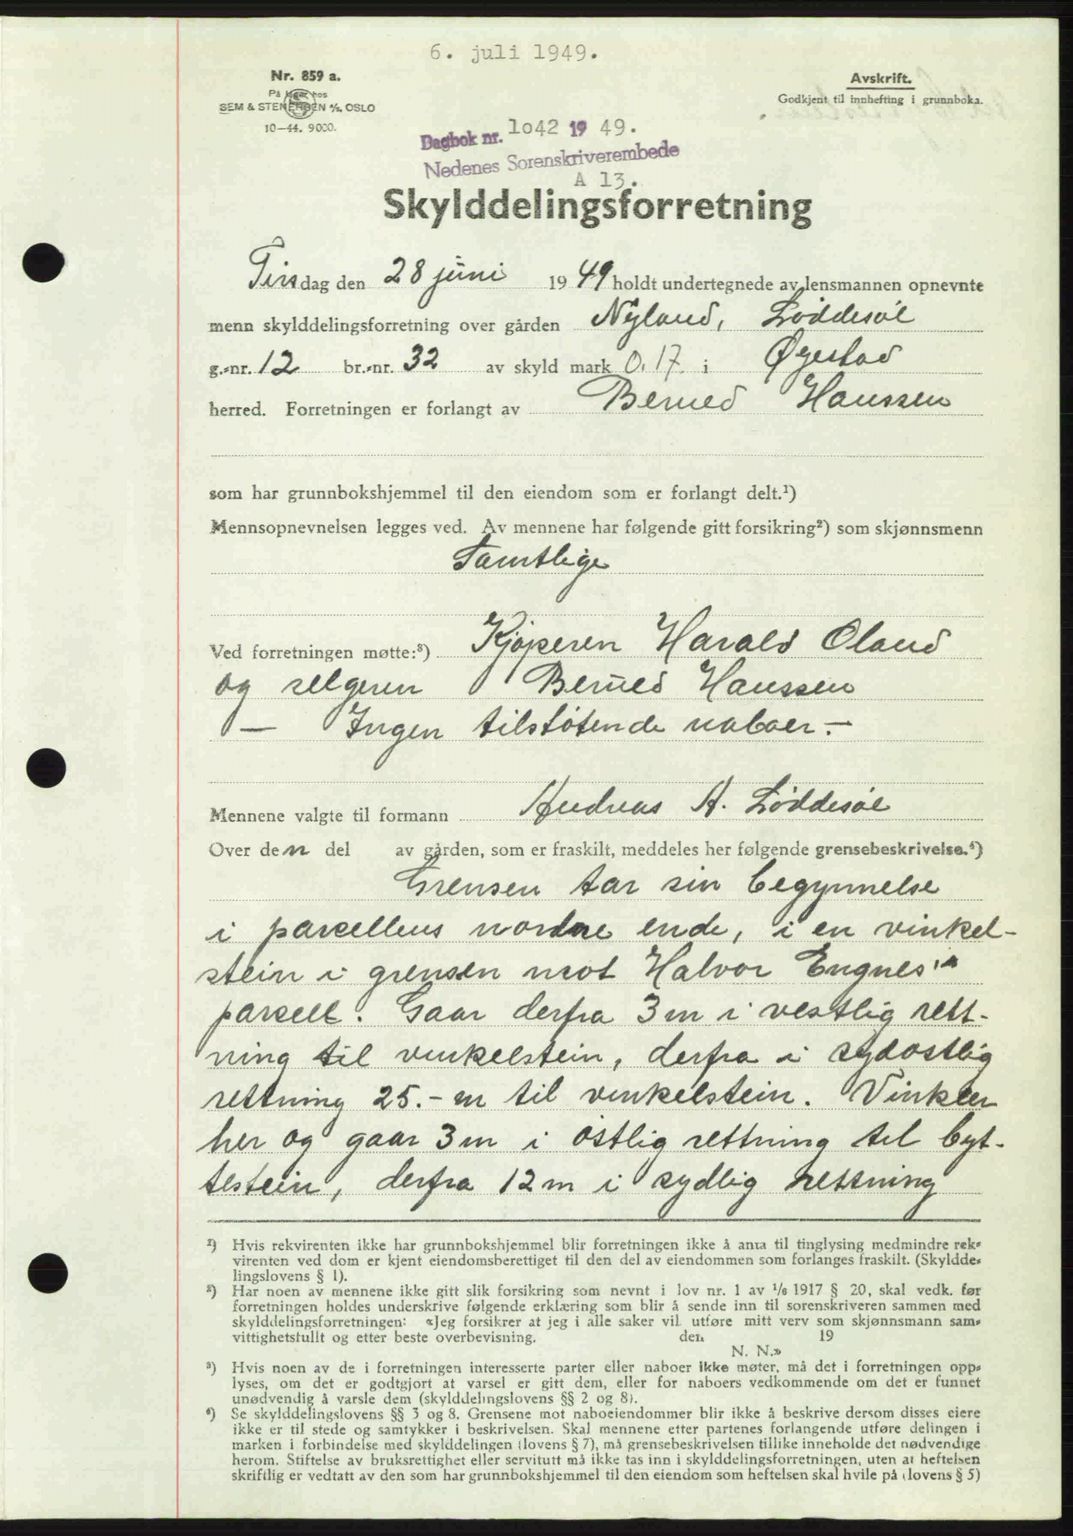 6. juli 1949.
Nr. 859 a.
SEM & STENERSEN A/S, OSLO
10-44. 9000.
Avskrift.
Godkjent til innhefting i grunnboka.
Dagbok nr. 1042 1949.
Nedenes Sorenskriverembede
A 13.
Skylddelingsforretning
Tirsdag den 28 juni 1949 holdt undertegnede av lensmannen opnevnte
menn skylddelingsforretning over gården Nyland, Løddesøl
g.-nr. 12 br.-nr. 32 av skyld mark 0.17. i Øyestad
herred. Forretningen er forlangt av Berned Hanssen
som har grunnbokshjemmel til den eiendom som er forlangt delt.¹)
Mennsopnevnelsen legges ved. Av mennene har følgende gitt forsikring²) som skjønnsmenn
Samtlige
Ved forretningen møtte:³) Kjøperen Harald Øland
og selgeren Berned Hanssen
— Ingen tilstøtende naboer. —
Mennene valgte til formann Andreas A. Løddesøl
Over den del av gården, som er fraskilt, meddeles her følgende grensebeskrivelse.⁴)
Grensen tar sin begynnelse
i parcellens nordre ende, i en vinkel-
stein i grensen mot Halvor Engnes'
parcell. Gaar derfra 3 m i vestlig rett-
ning til vinkelstein, derfra i sydøstlig
rettning 25.- m til vinkelstein. Vinkler
her og gaar 3 m i østlig rettning til byt-
testein, derfra 12 m i sydlig rettning
¹) Hvis rekvirenten ikke har grunnbokshjemmel blir forretningen ikke å anta til tinglysing medmindre rek-
virenten ved dom er kjent eiendomsberettiget til den del av eiendommen som forlanges fraskilt. (Skyldde-
lingslovens § 1).
²) Har noen av mennene ikke gitt slik forsikring som nevnt i lov nr. 1 av 1/6 1917 § 20, skal vedk. før
forretningen holdes underskrive følgende erklæring som blir å sende inn til sorenskriveren sammen med
skylddelingsforretningen: «Jeg forsikrer at jeg i alle saker vil utføre mitt verv som skjønnsmann sam-
vittighetsfullt og etter beste overbevisning. den 19
N. N.»
³) Hvis noen av de i forretningen interesserte parter eller naboer ikke møter, må det i forretningen opp-
lyses, om det er godtgjort at varsel er gitt dem, eller for naboers vedkommende om det er funnet
unødvendig å varsle dem (skylddelingslovens §§ 2 og 8).
⁴) Se skylddelingslovens §§ 3 og 8. Grensene mot naboeiendommer blir ikke å beskrive dersom disses eiere
ikke er til stede og samtykker i beskrivelsen. Skal mennene etter partenes forlangende utføre delingen i
marken i forbindelse med skylddelingen (lovens § 7), må grensebeskrivelsen tillike inneholde det nødvendige
herom. Stiftelse av bruksrettighet eller servitutt må ikke tas inn i skylddelingsforretningen, uten at heftelsen
skriftlig er vedtatt av den som har grunnbokshjemmel til den eiendom som heftelsen skal hvile på (lovens § 5)